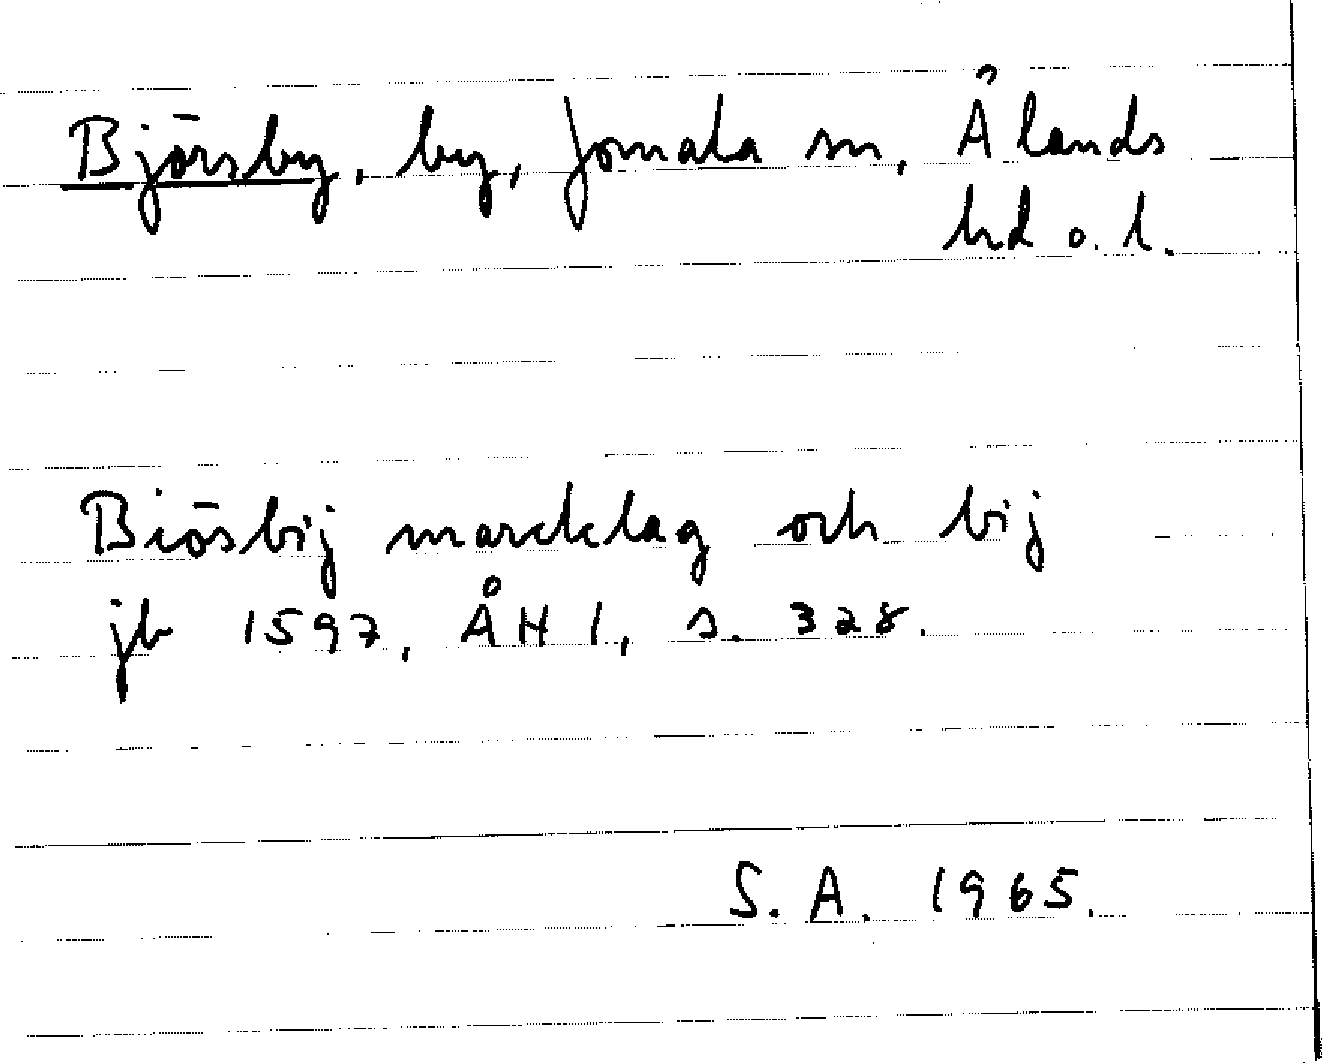 Björsby, by, Jomala sn, Ålands
hd o. l.
Biösbij marcklag och bij
jb 1597, ÅH 1, s. 328.
S. A. 1965.